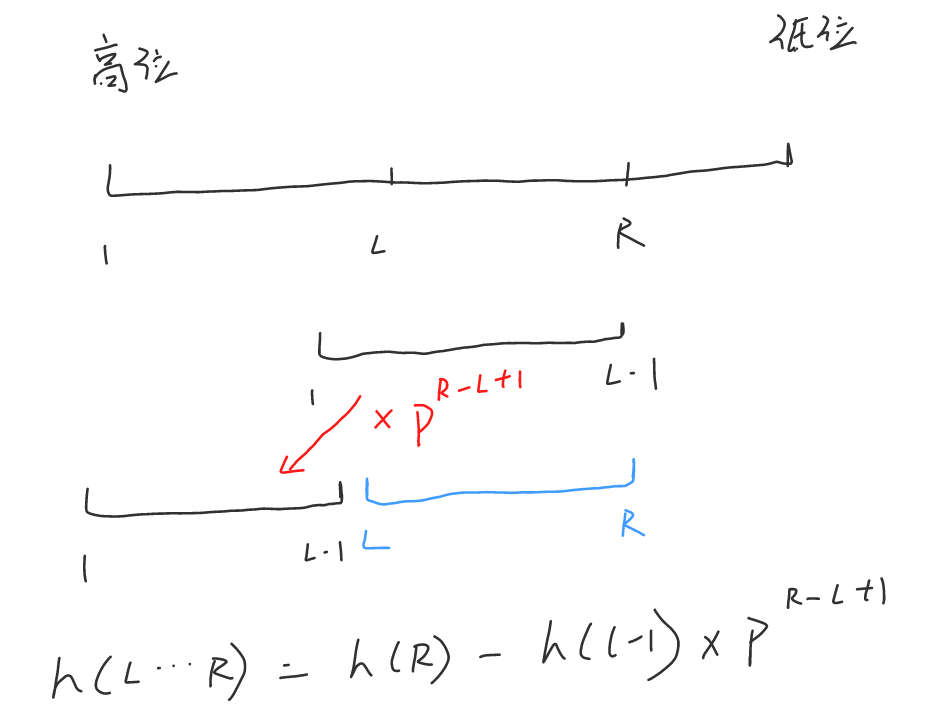 高位 低位
1 L R
1 L-1
× P^{R-L+1}
1 L-1 L R
h(L···R) = h(R) - h(L-1) × P^{R-L+1}